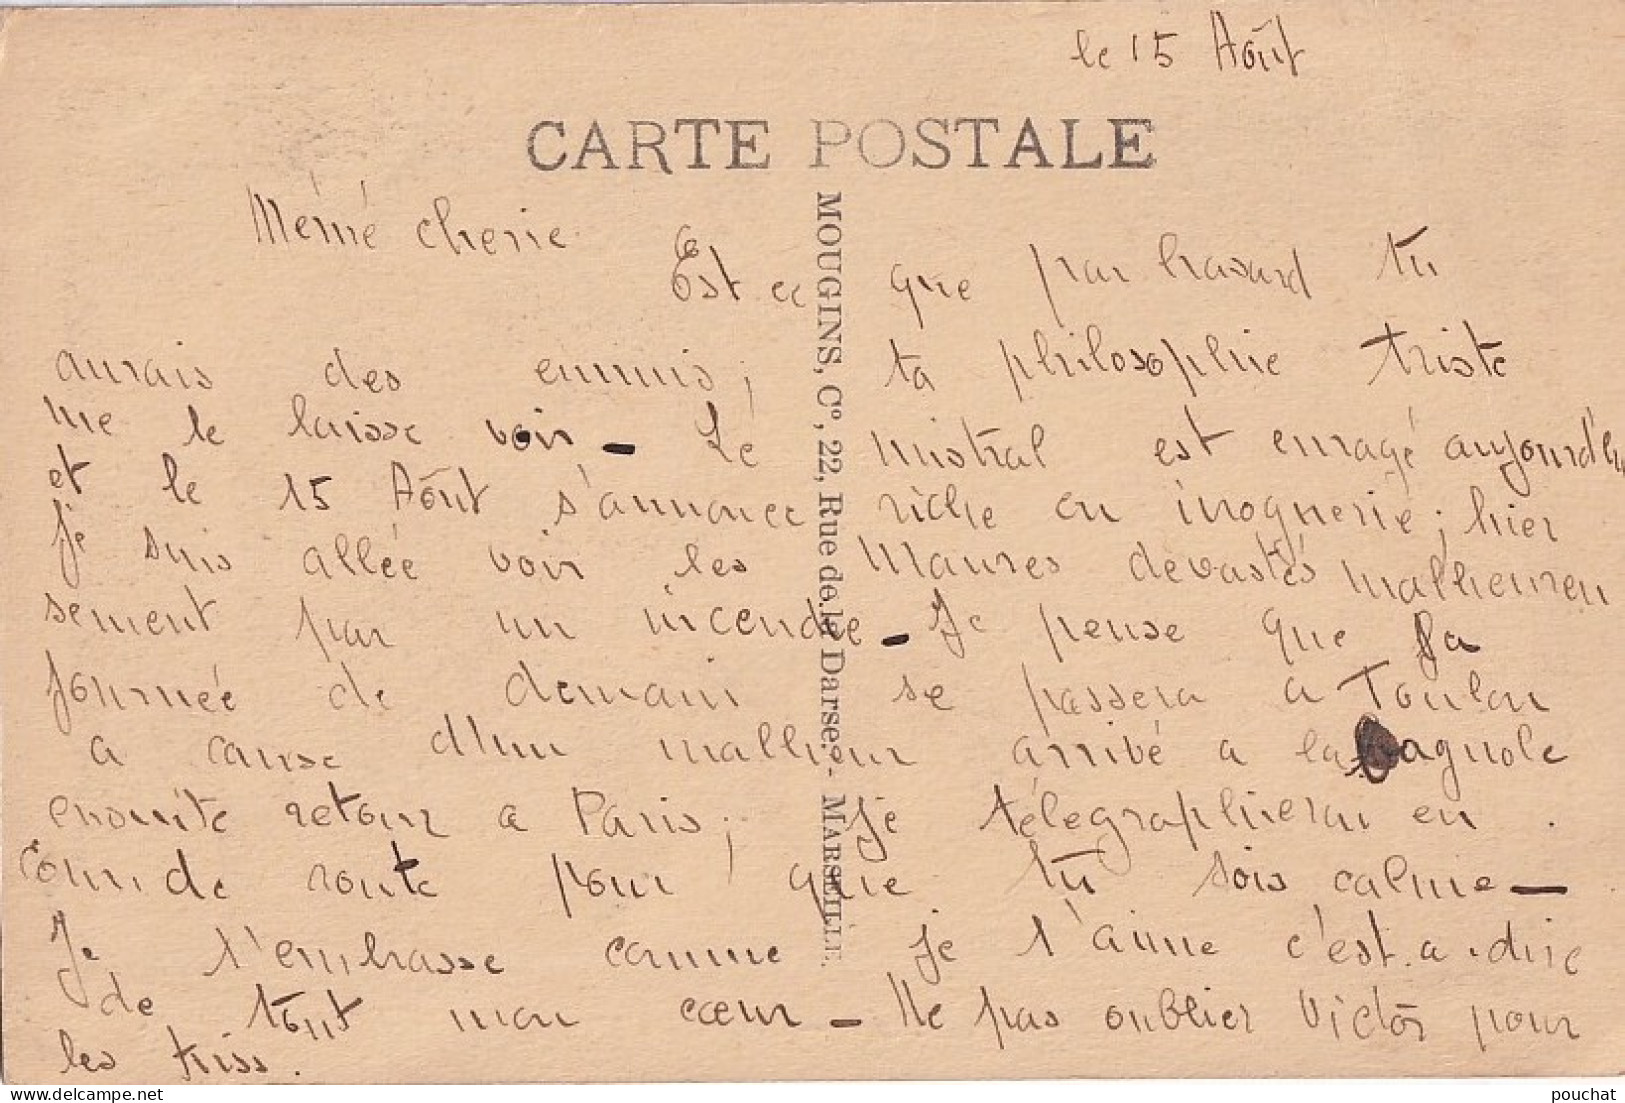 le 15 Aôut
CARTE POSTALE
MOUGINS, Cº, 22, Rue de la Darse. - MARSEILLE.
Mémé cherie
Est ce que par hasard tu
aurais des ennuis ; ta philosophie triste
me le laisse voir - Le mistral est enragé aujourd'hu
et le 15 Aôut s'annonce riche en ivrognerie ; hier
je suis allée voir les Maures dévastés malheureu
sement par un incendie - Je pense que la
journée de demain se passera a Toulon
a cause d'un malheur arrivé a la bagnole
ensuite retour a Paris ; je télégraphierai en
cour, de route pour que tu sois calme -
Je t'embrasse comme je t'aime c'est a dire
de tout mon cœur - Ne pas oublier Victor pour
les kiss.
pouchat